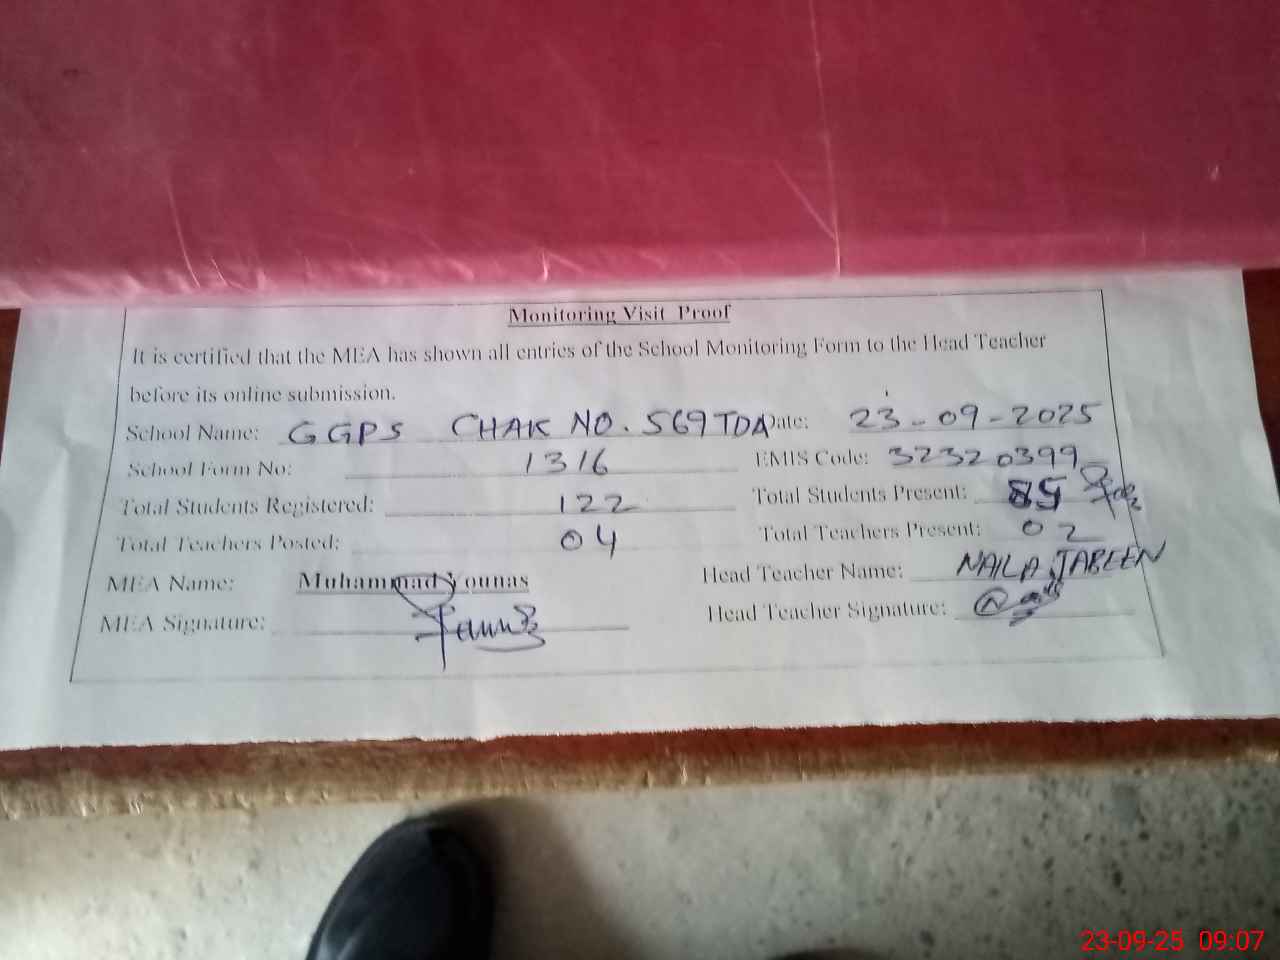 Monitoring Visit Proof
It is certified that the MEA has shown all entries of the School Monitoring Form to the Head Teacher
before its online submission.
School Name: GGPS CHAK NO. 569 TDA Date: 23-09-2025
School Form No: 1316 EMIS Code: 32320399
Total Students Registered: 122 Total Students Present: 85
Total Teachers Posted: 04 Total Teachers Present: 02
MEA Name: Muhammad Younas Head Teacher Name: NAILA JABEEN
MEA Signature: Head Teacher Signature:
23-09-25 09:07